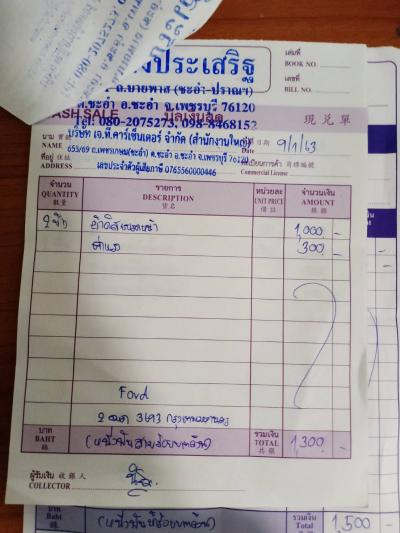 ประเสริฐ
ถ.บายพาส (ชะอำ-ปราณฯ)
ต.ชะอำ อ.ชะอำ จ.เพชรบุรี 76120
Tel: 080-2075273, 098-8468152
เล่มที่
BOOK NO.
เลขที่
BILL NO.
CASH SALE บิลเงินสด 現兑單
นาม
NAME
บริษัท เจ.ที.คาร์เซ็นเตอร์ จำกัด (สำนักงานใหญ่)
วันที่ 日期
Date 9/1/63
ที่อยู่ 住址
ADDRESS
653/69 ถ.เพชรเกษม(ชะอำ) ต.ชะอำ อ.ชะอำ จ.เพชรบุรี 76120
เลขประจำตัวผู้เสียภาษี 0765560000446
ทะเบียนการค้า 商標編號
Commercial License
จำนวน รายการ หน่วยละ จำนวนเงิน
QUANTITY DESCRIPTION UNIT PRICE AMOUNT
數量 貨名 價註 銀額
1,000 -
ค่าแรง 300 -
Ford
2 ฒฌา 3493 กรุงเทพมหานคร
บาท
BAHT
銖
(หนึ่งพันสามร้อยบาทถ้วน)
รวมเงิน
TOTAL
共銀
1,300 -
ผู้รับเงิน 收銀人
COLLECTOR
บาท
Baht
銖
รวมเงิน
Total
共銀
1,500 -